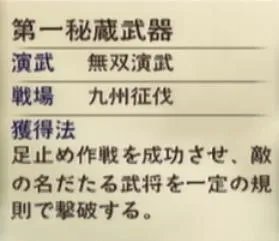 第一秘蔵武器
演武 無双演武
戦場 九州征伐
獲得法
足止め作戦を成功させ、敵
の名だたる武将を一定の規
則で撃破する。